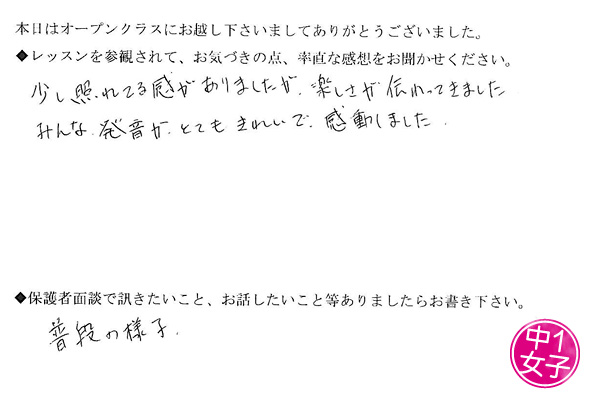 本日はオープンクラスにお越し下さいましてありがとうございました。
◆レッスンを参観されて、お気づきの点、率直な感想をお聞かせください。
少し照れてる感がありましたが、楽しさが伝わってきました
みんな、発音が、とてもきれいで、感動しました。
◆保護者面談で訊きたいこと、お話したいこと等ありましたらお書き下さい。
普段の様子。
中1
女子